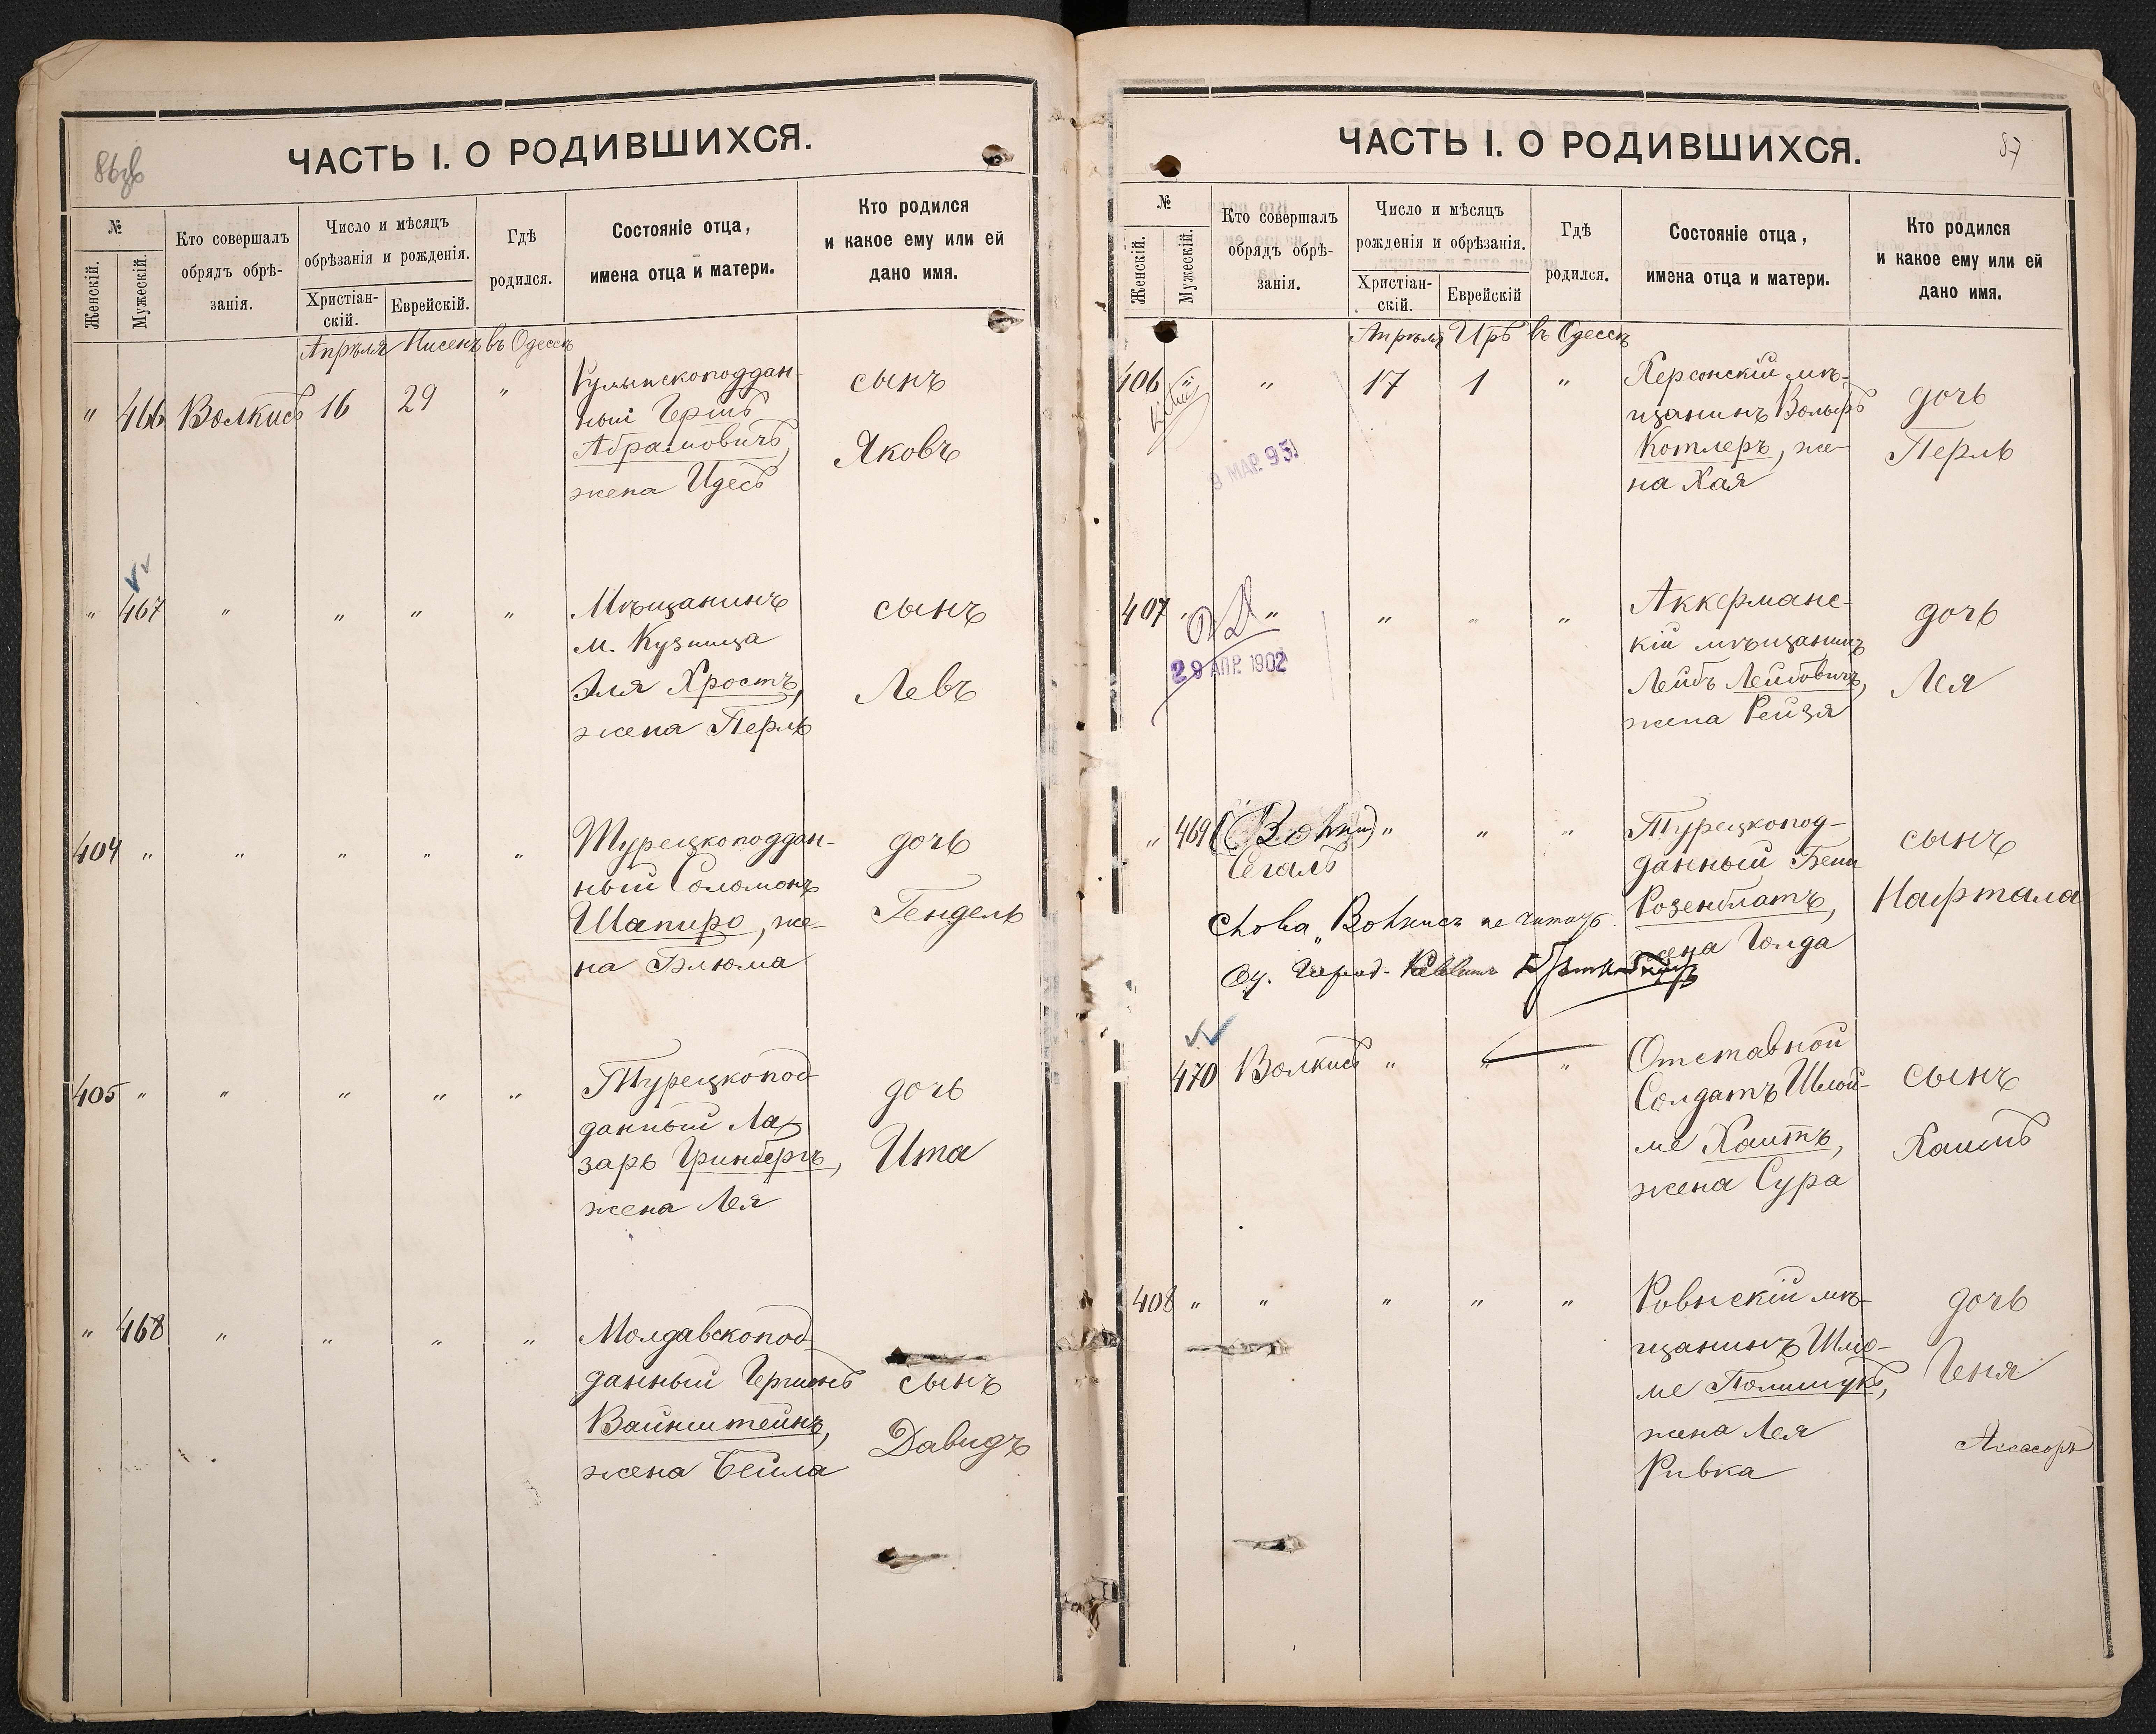 86об
ЧАСТЬ I. О РОДИВШИХСЯ.
№
Женскій.
Мужескій.
Кто совершалъ
обрядъ обрѣ-
занія.
Число и мѣсяцъ
обрѣзанія и рожденія.
Христіан-
скій.
Еврейскій.
Гдѣ
родился.
Состояніе отца,
имена отца и матери.
Кто родился
и какое ему или ей
дано имя.
Апрѣля Нисенъ въ Одессѣ
" 466 Волкисъ 16 29 "
Румынскоподдан-
ный Гершъ
Абрамовичъ,
жена Идесъ
сынъ
Яковъ
" 467 " " " "
Мѣщанинъ
м. Кузница
Эля Хростъ,
жена Перль
сынъ
Левъ
404 " " " " "
Турецкоподдан-
ный Соломонъ
Шапиро, же-
на Блюма
дочь
Гендель
405 " " " " "
Турецкопод-
данный Ла-
зарь Гринбергъ,
жена Лея
дочь
Ита
" 468 " " " "
Молдавскопод-
данный Гершонъ
Вайнштейнъ,
жена Бейла
сынъ
Давидъ
87
ЧАСТЬ I. О РОДИВШИХСЯ.
№
Женскій.
Мужескій.
Кто совершалъ
обрядъ обрѣ-
занія.
Число и мѣсяцъ
рожденія и обрѣзанія.
Христіан-
скій.
Еврейскій
Гдѣ
родился.
Состояніе отца,
имена отца и матери.
Кто родился
и какое ему или ей
дано имя.
Апрѣля Иръ въ Одессѣ
406 " 17 1 "
9 МАР. 95
Херсонскій мѣ-
щанинъ Вольфъ
Котлеръ, же-
на Хая
дочь
Перль
407 " " " " "
29 АПР. 1902
Аккерманс-
кій мѣщанинъ
Лейбъ Лейбовичъ,
жена Рейзя
дочь
Лея
" 469 (Волкис) " " "
Сегалъ
Слова "Волкисъ не читать.
Од. Город. Раввинъ
Турецкопод-
данный Бенп
Розенблатъ,
жена Голда
сынъ
Нафтала
470 Волкисъ " " "
Отставной
Солдатъ Шлой-
ме Хаитъ,
жена Сура
сынъ
Хаимъ
408 " " " " "
Ровнскій мѣ-
щанинъ Шлио-
ме Полищукъ,
жена Лея
Ривка
дочь
Геня